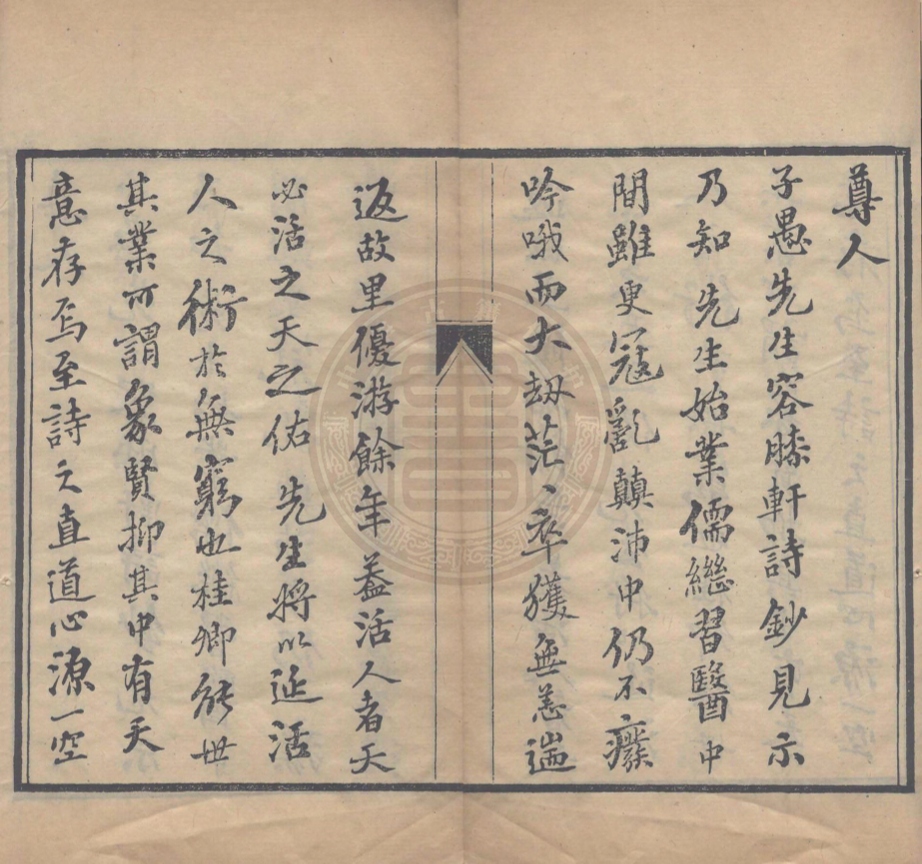 尊人
子愚先生容膝軒詩鈔見示
乃知先生始業儒繼習醫中
間雖更寇亂顛沛中仍不廢
吟哦而大劫茫〻卒獲無恙遄
返故里優游餘年蓋活人者天
必活之天之佑先生將以延活
人之術於無窮也桂卿能世
其業可謂象賢抑其中有天
意存焉至詩之直道心源一空